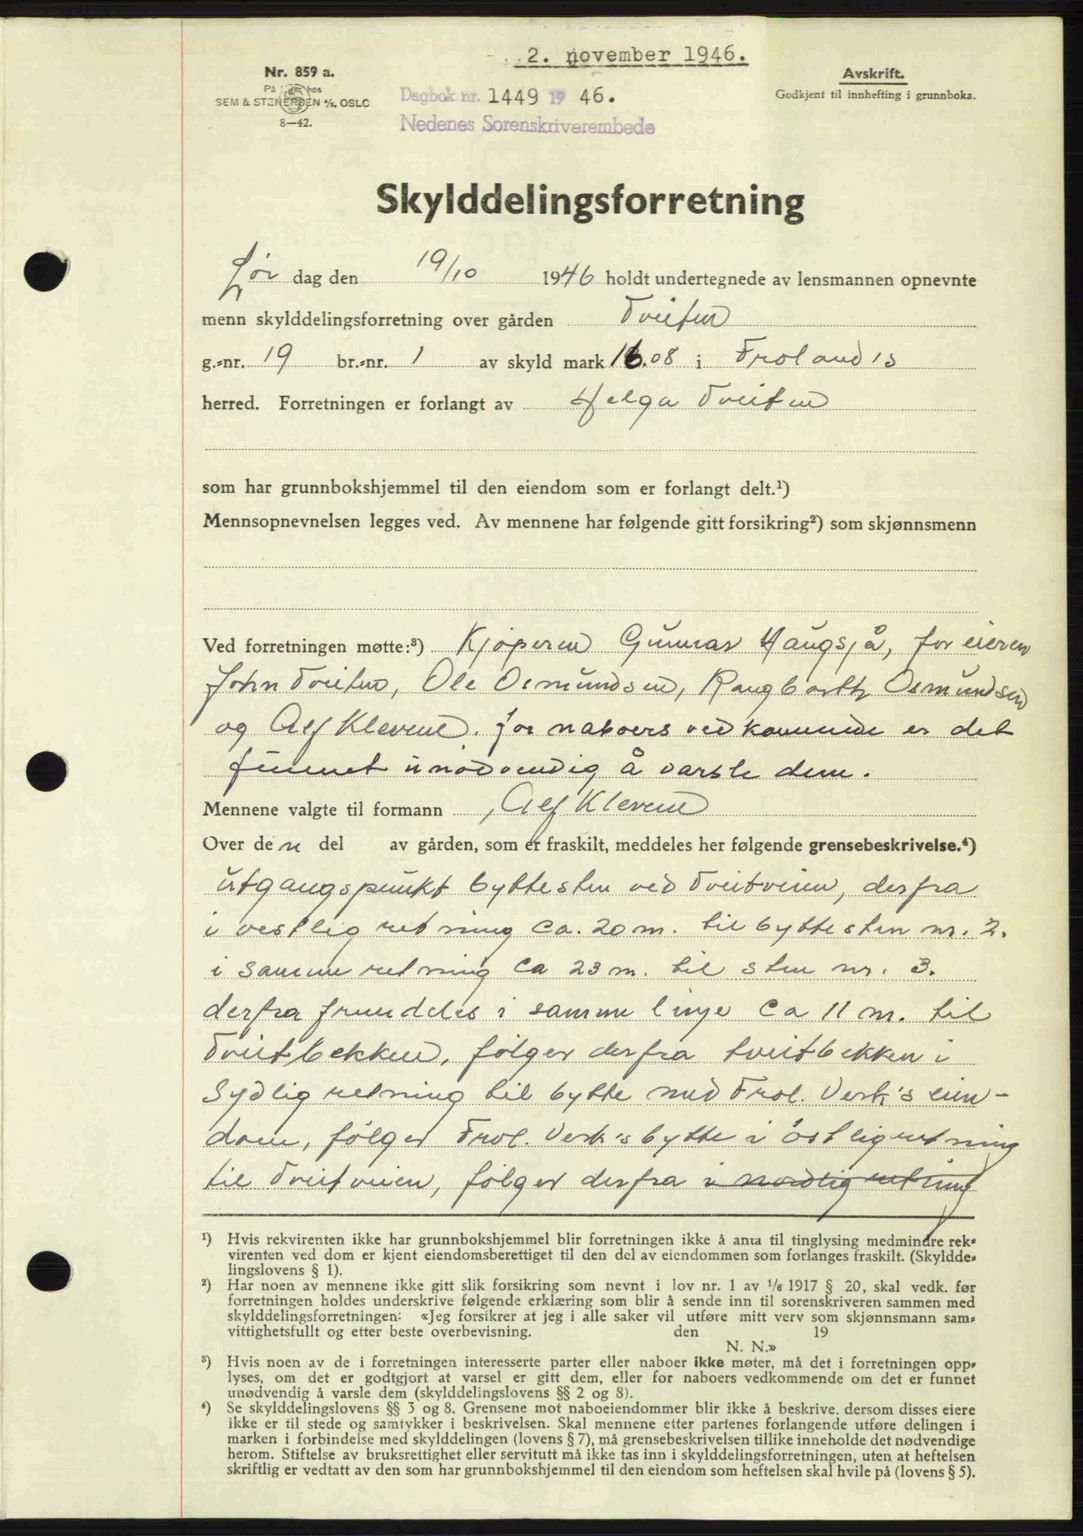 2. november 1946.
Nr. 859 a.
Avskrift.
På lager hos
SEM & STENERSEN A/S, OSLO
Godkjent til innhefting i grunnboka.
8—42.
Dagbok nr. 1449 19 46.
Nedenes Sorenskriverembede
Skylddelingsforretning
Lør dag den 19/10 1946 holdt undertegnede av lensmannen opnevnte
menn skylddelingsforretning over gården Tveiten
g.-nr. 19 br.-nr. 1 av skyld mark 16.08 i Froland's
herred. Forretningen er forlangt av Helga Tveiten
som har grunnbokshjemmel til den eiendom som er forlangt delt.¹)
Mennsopnevnelsen legges ved. Av mennene har følgende gitt forsikring²) som skjønnsmenn
Ved forretningen møtte:³) Kjøperen Gunnar Haugsjå, for eieren
John Tveiten, Ole Osmundsen, Osmundsen
og Alf Klevene. for naboers vedkommende er det
funnet unødvendig å varsle dem.
Mennene valgte til formann Alf Klevene
Over den del av gården, som er fraskilt, meddeles her følgende grensebeskrivelse.⁴)
Utgangspunkt byttesten ved Tveitveien, derfra
i vestlig retning ca. 20 m. til byttesten nr. 2.
i samme retning ca 23 m. til sten nr. 3.
derfra fremdeles i samme linje ca 11 m. til
Tveitbekken, følger derfra tveitbekken i
Sydlig retning til bytte med Frol. Verk's eien-
dom, følger Frol. Verk's bytte i östlig retning
til Tveitveien, følger derfra i nordlig retning
¹) Hvis rekvirenten ikke har grunnbokshjemmel blir forretningen ikke å anta til tinglysing medmindre rek-
virenten ved dom er kjent eiendomsberettiget til den del av eiendommen som forlanges fraskilt. (Skyldde-
lingslovens § 1).
²) Har noen av mennene ikke gitt slik forsikring som nevnt i lov nr. 1 av ¹/₆ 1917 § 20, skal vedk. før
forretningen holdes underskrive følgende erklæring som blir å sende inn til sorenskriveren sammen med
skylddelingsforretningen: «Jeg forsikrer at jeg i alle saker vil utføre mitt verv som skjønnsmann sam-
vittighetsfullt og etter beste overbevisning. den 19
N. N.»
³) Hvis noen av de i forretningen interesserte parter eller naboer ikke møter, må det i forretningen opp-
lyses, om det er godtgjort at varsel er gitt dem, eller for naboers vedkommende om det er funnet
unødvendig å varsle dem (skylddelingslovens §§ 2 og 8).
⁴) Se skylddelingslovens §§ 3 og 8. Grensene mot naboeiendommer blir ikke å beskrive, dersom disses eiere
ikke er til stede og samtykker i beskrivelsen. Skal mennene etter partenes forlangende utføre delingen i
marken i forbindelse med skylddelingen (lovens § 7), må grensebeskrivelsen tillike inneholde det nødvendige
herom. Stiftelse av bruksrettighet eller servitutt må ikke tas inn i skylddelingsforretningen, uten at heftelsen
skriftlig er vedtatt av den som har grunnbokshjemmel til den eiendom som heftelsen skal hvile på (lovens § 5).